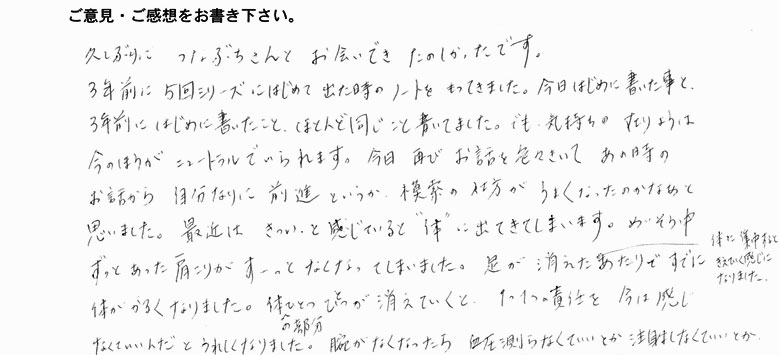 ご意見・ご感想をお書き下さい。
久しぶりに つなぶちさんと お会いでき たのしかったです。
3年前に 5回シリーズにはじめて 出た時の ノートを もってきました。今日はじめに書いた事と、
3年前に はじめに書いたこと、ほとんど同じこと書いてました。でも、気持ちの 在りようは
今のほうが ニュートラルでいられます。今日 再び お話を色々きいて あの時の
お話から 自分なりに 前進 というか、模索の仕方が うまくなったのかなあと
思いました。最近は きついと感じていると"体"に出てきてしまいます。めいそう中
ずっとあった肩こりが すーっと なくなってしまいました。足が 消えたあたりで すでに
体に集中すると
きえていく感じに
なりました。
体がかるくなりました。体ひとつひとつが消えていくと、1つ1つの責任を 今は感じ
の部分
なくていいんだと うれしくなりました。腕がなくなったら 血圧測らなくていいとか 注射しなくていいとか